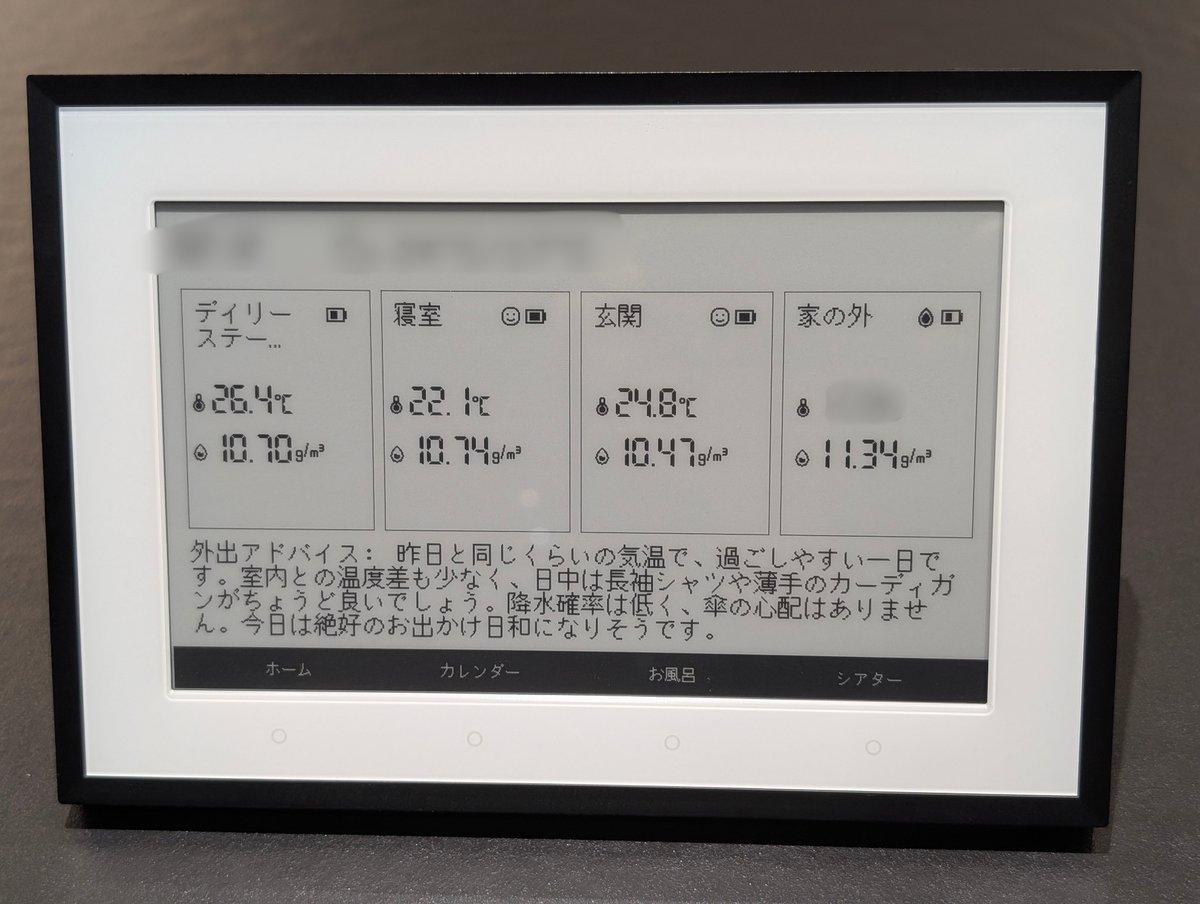 デイリー
ステー…
26.4℃
10.70g/m³
寝室
22.1℃
10.74g/m³
玄関
24.8℃
10.47g/m³
家の外
11.34g/m³
外出アドバイス: 昨日と同じくらいの気温で、過ごしやすい一日で
す。室内との温度差も少なく、日中は長袖シャツや薄手のカーディガ
ンがちょうど良いでしょう。降水確率は低く、傘の心配はありませ
ん。今日は絶好のお出かけ日和になりそうです。
ホーム カレンダー お風呂 シアター